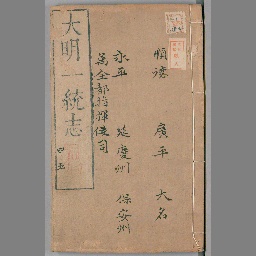 大明一統志
四之五
順德 廣平 大名
永平 延慶州 保安州
萬全都指揮使司